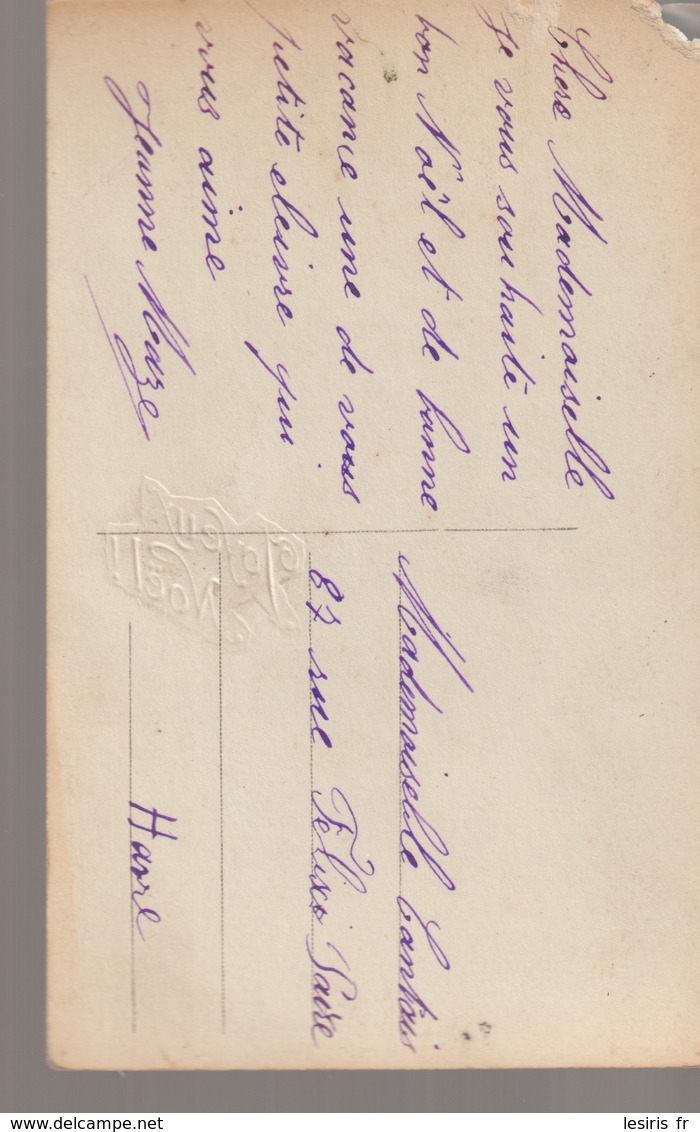 Chere Mademoiselle
je vous souhaite un
bon Noël et de bonne
vacance une de vous
petite eleivre qui
vous aime
Jeanne Maze
Mademoiselle
87 rue Félix Faure
Havre
Noël!
delcampe.net
lesiris fr